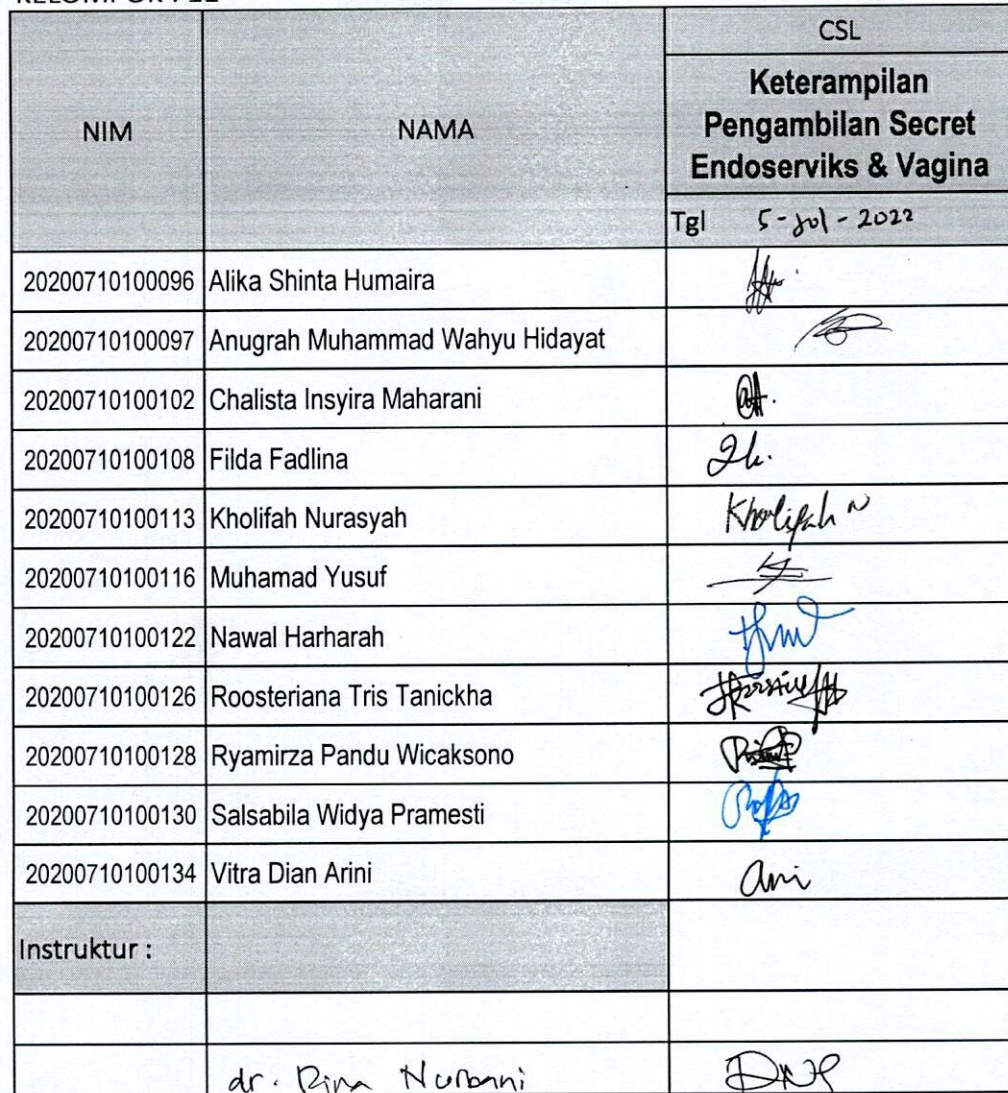 CSL
NIM NAMA Keterampilan
Pengambilan Secret
Endoserviks & Vagina
Tgl 5-Jul-2022
20200710100096 Alika Shinta Humaira
20200710100097 Anugrah Muhammad Wahyu Hidayat
20200710100102 Chalista Insyira Maharani
20200710100108 Filda Fadlina
20200710100113 Kholifah Nurasyah Kholifah N
20200710100116 Muhamad Yusuf
20200710100122 Nawal Harharah
20200710100126 Roosteriana Tris Tanickha
20200710100128 Ryamirza Pandu Wicaksono
20200710100130 Salsabila Widya Pramesti
20200710100134 Vitra Dian Arini
Instruktur :
dr. Nurbani